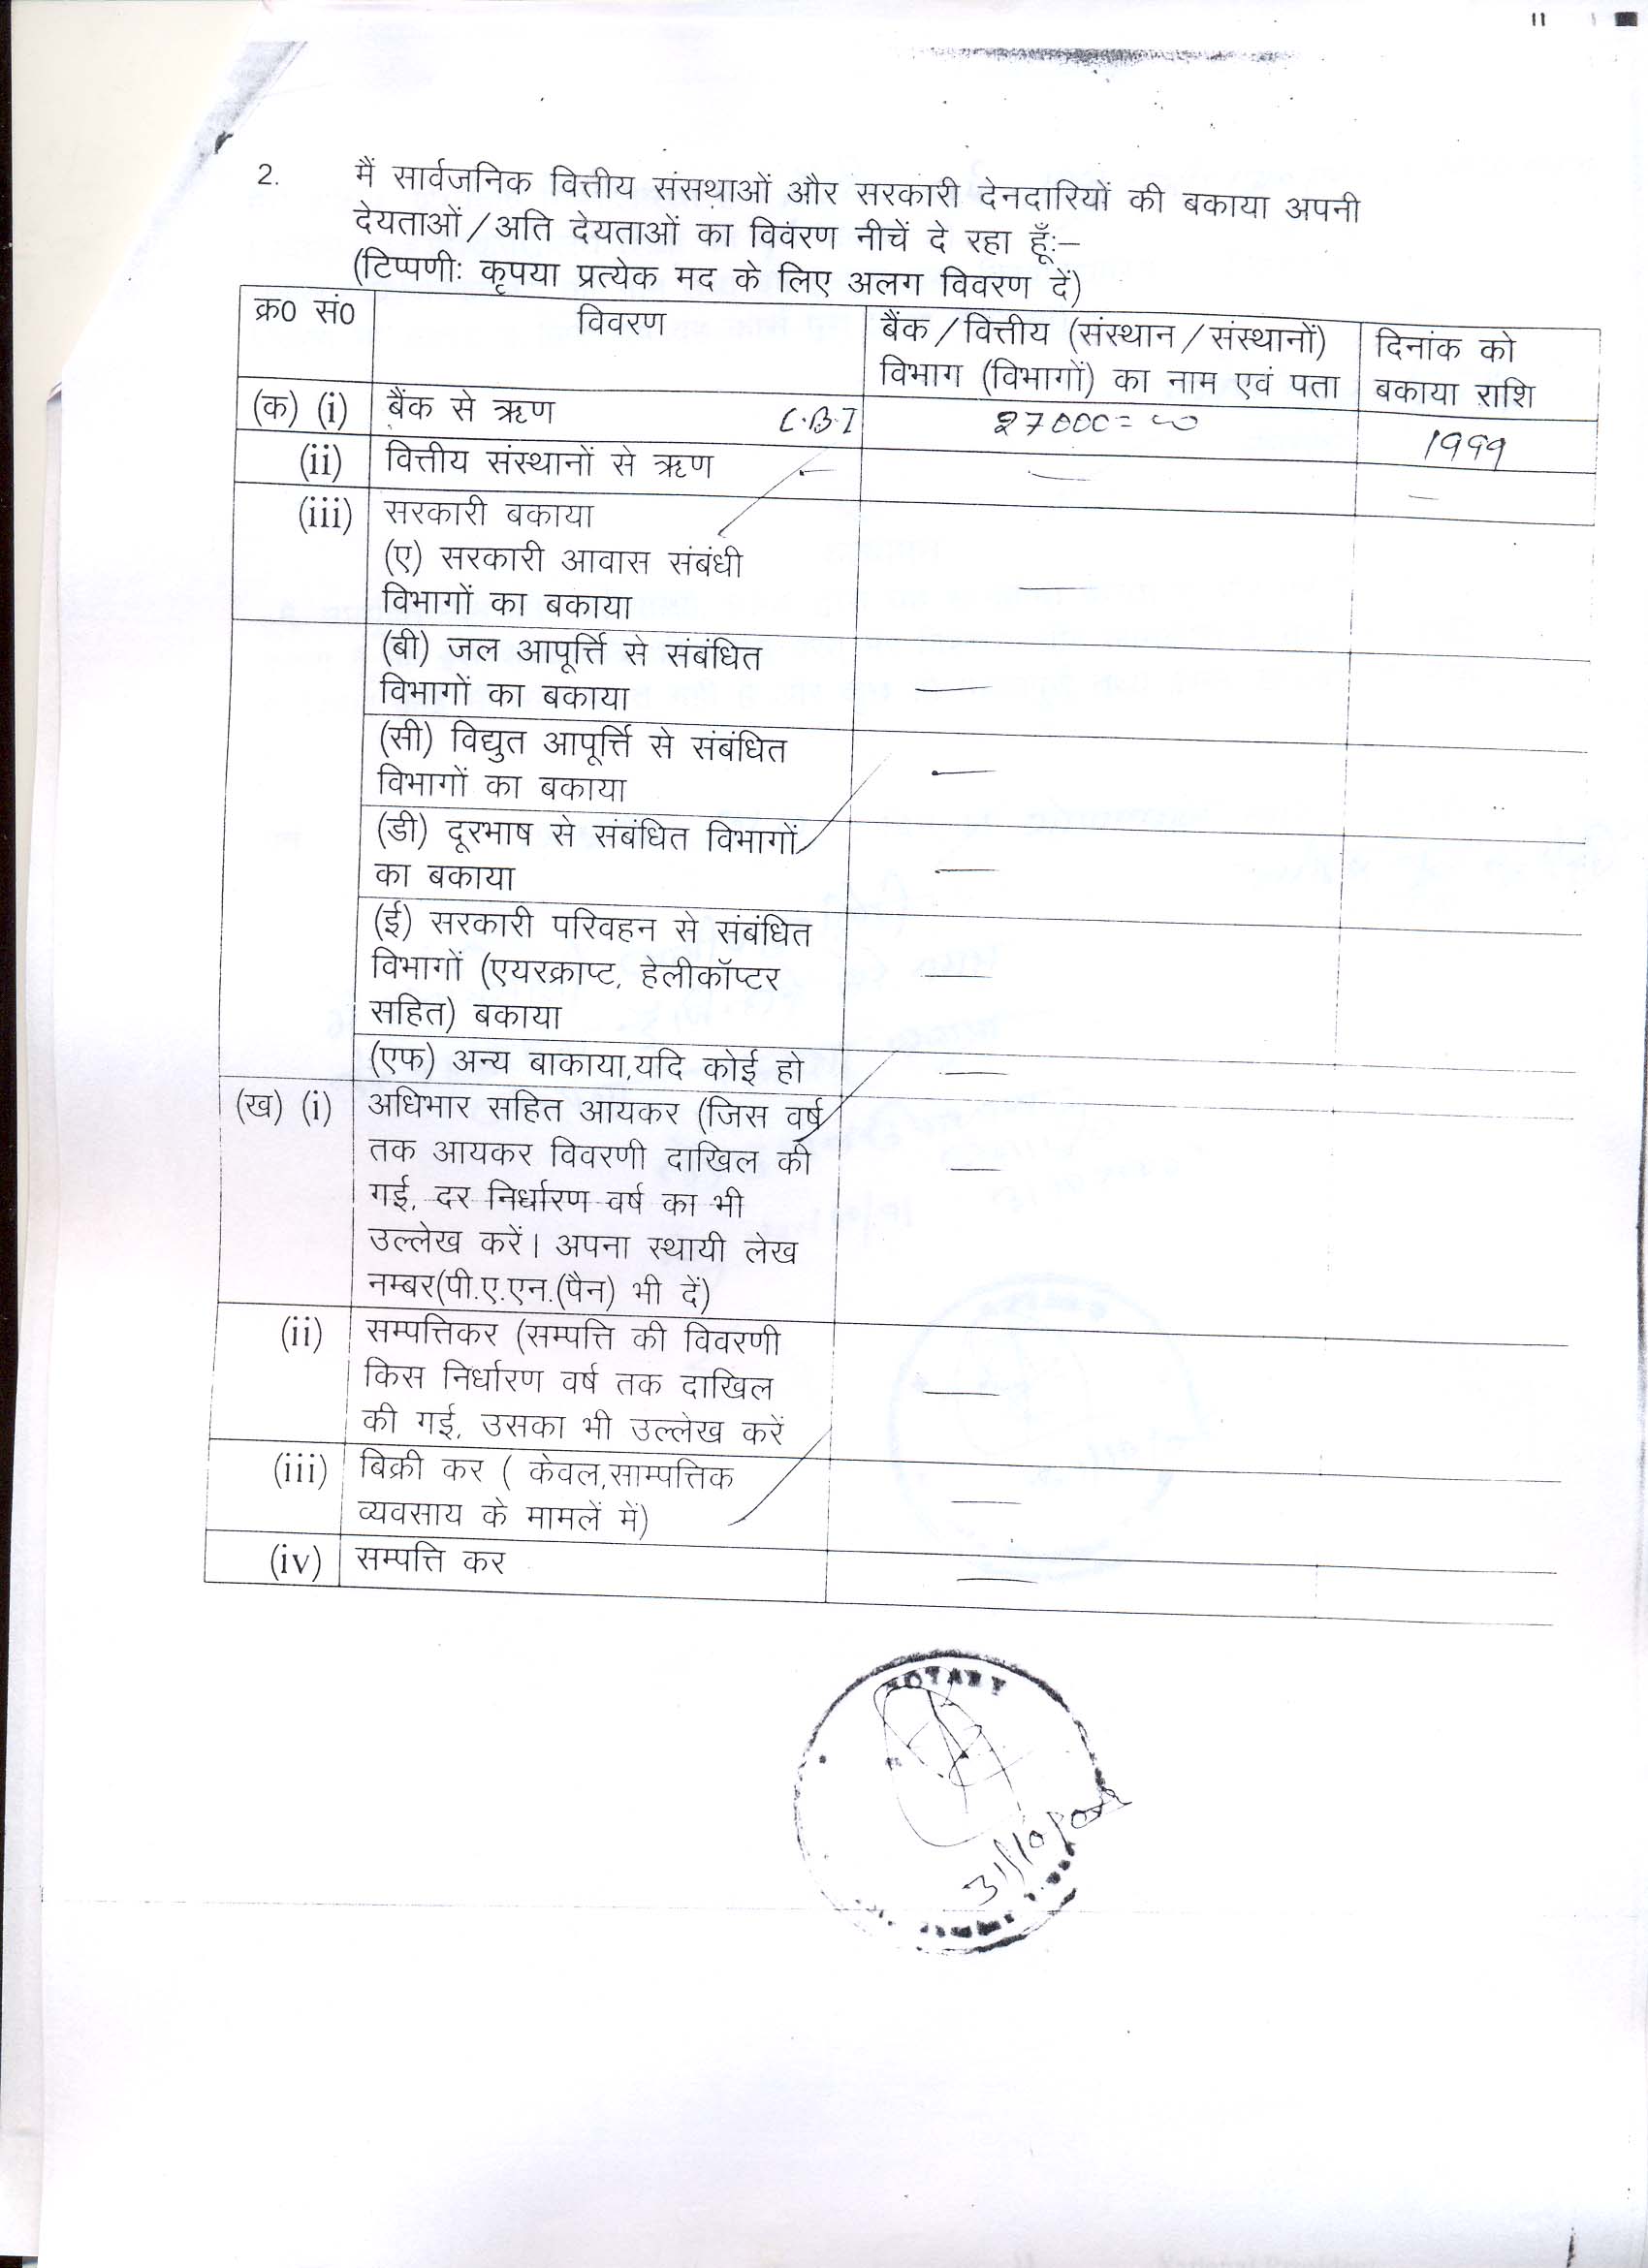 2. मैं सार्वजनिक वित्तीय संसथाओं और सरकारी देनदारियों की बकाया अपनी
देयताओं/अति देयताओं का विवरण नीचें दे रहा हूँ:–
(टिप्पणीः कृपया प्रत्येक मद के लिए अलग विवरण दें)
क्र0 सं0 विवरण बैंक/वित्तीय (संस्थान/संस्थानों) दिनांक को
विभाग (विभागों) का नाम एवं पता बकाया राशि
(क) (i) बैंक से ऋण C.B.I 27000=00 1999
(ii) वित्तीय संस्थानों से ऋण — — —
(iii) सरकारी बकाया
(ए) सरकारी आवास संबंधी
विभागों का बकाया —
(बी) जल आपूर्त्ति से संबंधित
विभागों का बकाया —
(सी) विद्युत आपूर्त्ति से संबंधित
विभागों का बकाया —
(डी) दूरभाष से संबंधित विभागों
का बकाया —
(ई) सरकारी परिवहन से संबंधित
विभागों (एयरक्राप्ट, हेलीकॉप्टर —
सहित) बकाया
(एफ) अन्य बाकाया,यदि कोई हो —
(ख) (i) अधिभार सहित आयकर (जिस वर्ष
तक आयकर विवरणी दाखिल की —
गई, दर निर्धारण वर्ष का भी
उल्लेख करें। अपना स्थायी लेख
नम्बर(पी.ए.एन.(पैन) भी दें)
(ii) सम्पत्तिकर (सम्पत्ति की विवरणी
किस निर्धारण वर्ष तक दाखिल —
की गई, उसका भी उल्लेख करें
(iii) बिक्री कर ( केवल,साम्पत्तिक
व्यवसाय के मामलें में) —
(iv) सम्पत्ति कर —
NOTARY